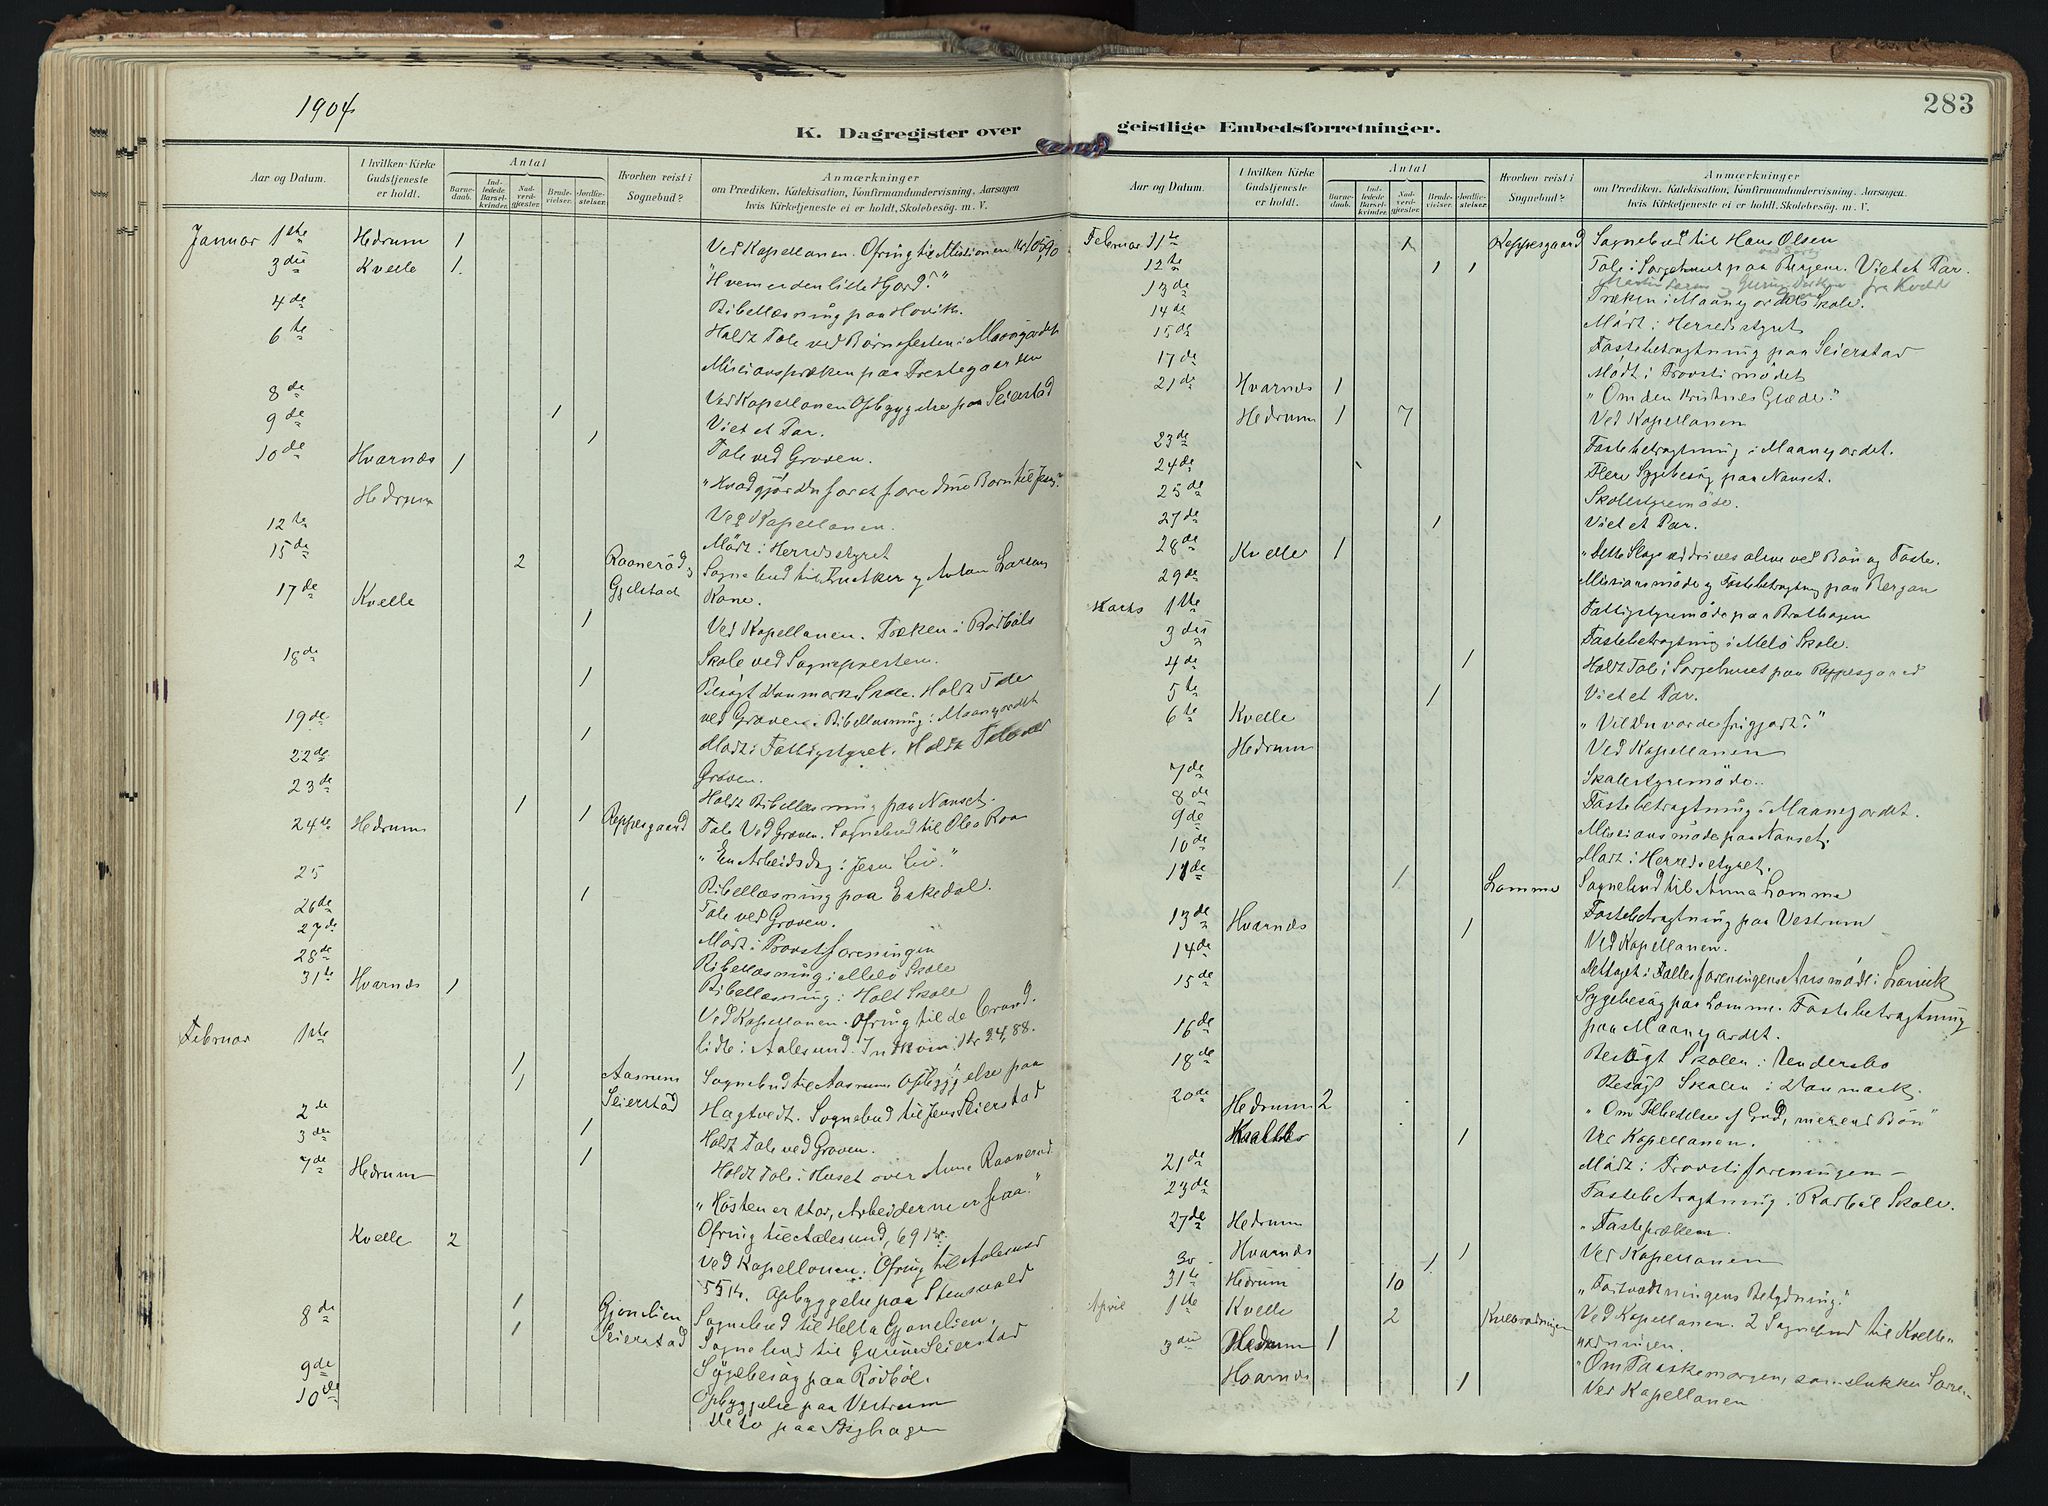 1904
283
K. Dagregister over geistlige Embedsforretninger.
Aar og Datum.
I hvilken Kirke Gudstjeneste er holdt.
Antal
Barnedaab.
Indledede Barselkvinder.
Nadverdgjæster.
Brudevielser.
Jordfæstelser.
Hvorhen reist i Sognebud?
Anmærkninger
om Prædiken, Katekisation, Konfirmandundervisning, Aarsagen
hvis Kirketjeneste ei er holdt, Skolebesøg. m. V.
Januar 1ste Hedrum 1 Ved Kapellanen. Ofring til Missionen Kr
3die Kvelle 1. "Hvem er den lille Hjord?"
4de Bibellæsning paa Hovik.
6te Holdt Tale ved Børnefesten i Maanejordet
Missionspræken paa Prestegaarden
8de Ved Kapellanen Opbyggelse paa Seierstad
9de 1 Viet et Par.
1 Tale ved Graven.
10de Hvarnæs 1 "Hvad gjør du for at føre dine Børn til Jesus?"
Hedrum Ved Kapellanen.
12te Mødt i Herredsstyret
15de 2 Raanerød, Sognebud til og Anton Larsens
Gjelstad Kone.
17de Kvelle 1 Ved Kapellanen. Præken i Rødbøls
Skole ved Sognepresten.
18de 1 Besøgt Danmark Skole. Holdt Tale
ved Graven. Bibellæsning i Maanejordet
19de 1 Mødt i Fattigstyret. Holdt Tale ved
Graven.
22de Holdt Bibellæsning paa Nanset.
23de 1 1 Reppesgaard Tale ved Graven. Sognebud til Olea Roa
24de Hedrum "En Arbeidsdag i Jesu Liv."
25 Bibellæsning paa Eskedal.
26de 1 Tale ved Graven.
27de Mødt i Provstiforeningen
28de Bibellæsning i Melø Skole
Bibellæsning i Holt Skole
31te Hvarnæs 1 Ved Kapellanen. Ofring til de Brand
lidte i Aalesund. Indkom: Kr 34,88.
Februar 1ste 1 Aasrum Sognebud til Aasrum Opbyggelse paa
1 Seierstad Hagtvedt. Sognebud til Jens Seierstad
2de 1 Holdt Tale ved Graven.
3die 1 Holdt Tale i Huset over Anne Raanerød
7de Hedrum "Høsten er stor, Arbeiderne er faa."
Ofring til Aalesund, 69 Kr.
Kvelle 2 Ved Kapellanen. Ofring til Aalesund
55 Kr. Opbyggelse paa Stensvold
8de 1 Gjønelien Sognebud til Helta Gjønelien,
1 Seierstad Sognebud til Gurine Seierstad
9de Sygebesøg paa Rødbøl.
10de Opbyggelse paa Vestrum
Deto paa Myhagen
Aar og Datum.
I hvilken Kirke Gudstjeneste er holdt.
Antal
Barnedaab.
Indledede Barselkvinder.
Nadverdgjæster.
Brudevielser.
Jordfæstelser.
Hvorhen reist i Sognebud?
Anmærkninger
om Prædiken, Katekisation, Konfirmandundervisning, Aarsagen
hvis Kirketjeneste ei er holdt, Skolebesøg. m. V.
Februar 11te 1 Reppesgaard Sognebud til Hans Olsen
12te 1 1 Tale i Sørgehuset paa Bergene. Viet et Par.
fra Kvelle
13de Præken i Maanejordets Skole.
14de Mødt i Herredsstyret
15de Fastebetragtning paa Seierstad
17de Mødt i Provstimødet
21de Hvarnæs 1 "Om den Kristnes Glæde."
Hedrum 1 7 Ved Kapellanen
23de Fastebetragtning i Maanejordet.
24de Flere Sygebesøg paa Nanset.
25de Skolestyremøde.
27de 1 Viet et Par.
28de Kvelle 1 "Dette Slags uddrives alene ved Bøn og Faste.
29de Missionsmøde og Fastebetragtning paa Bergan
Marts 1ste Fattigstyremøde paa Brathagen
3die Fastebetragtning i Melø Skole.
4de 1 Holdt Tale i Sørgehuset paa Reppesgaard
5te 1 Viet et Par.
6te Kvelle "Vil Du vorde frigjort?"
Hedrum Ved Kapellanen
7de Skolestyremøde.
8de Fastebetragtning i Maanejordet.
9de Missionsmøde paa Nanset.
10de Mødt i Herredsstyret.
11de 1 Lamma Sognebud til Anna Lomma
Fastebetragtning paa Vestrum
13de Hvarnæs 1 Ved Kapellanen.
14de Deltaget i Fællesforeningens Aarsmøde i Larvik
15de Sygebesøg paa Lomme. Fastebetragtning
paa Maanejordet.
16de Besøgt Skolen i Undersbo
18de Besøgt Skolen i Danmark.
20de Hedrum 2 "Om Tilbedelse af Gud, mere end Bøn"
1 Ved Kapellanen.
21de Mødt i Provstiforeningen
23de Fastebetragtning i Rødbøl Skole.
27de Hedrum "Fastepræken
Hvarnæs 1 Ved Kapellanen
30 1
31te Hedrum 10 "Fodvadtningens Betydning."
April 1ste Kvelle 2 Kvelleødningen Ved Kapellanen. 2 Sognebud til Kvelle-
ødningen.
3die Hedrum 1 "Om Paaskemorgen, som slukker Sorgen
Hvarnæs 1 Ved Kapellanen